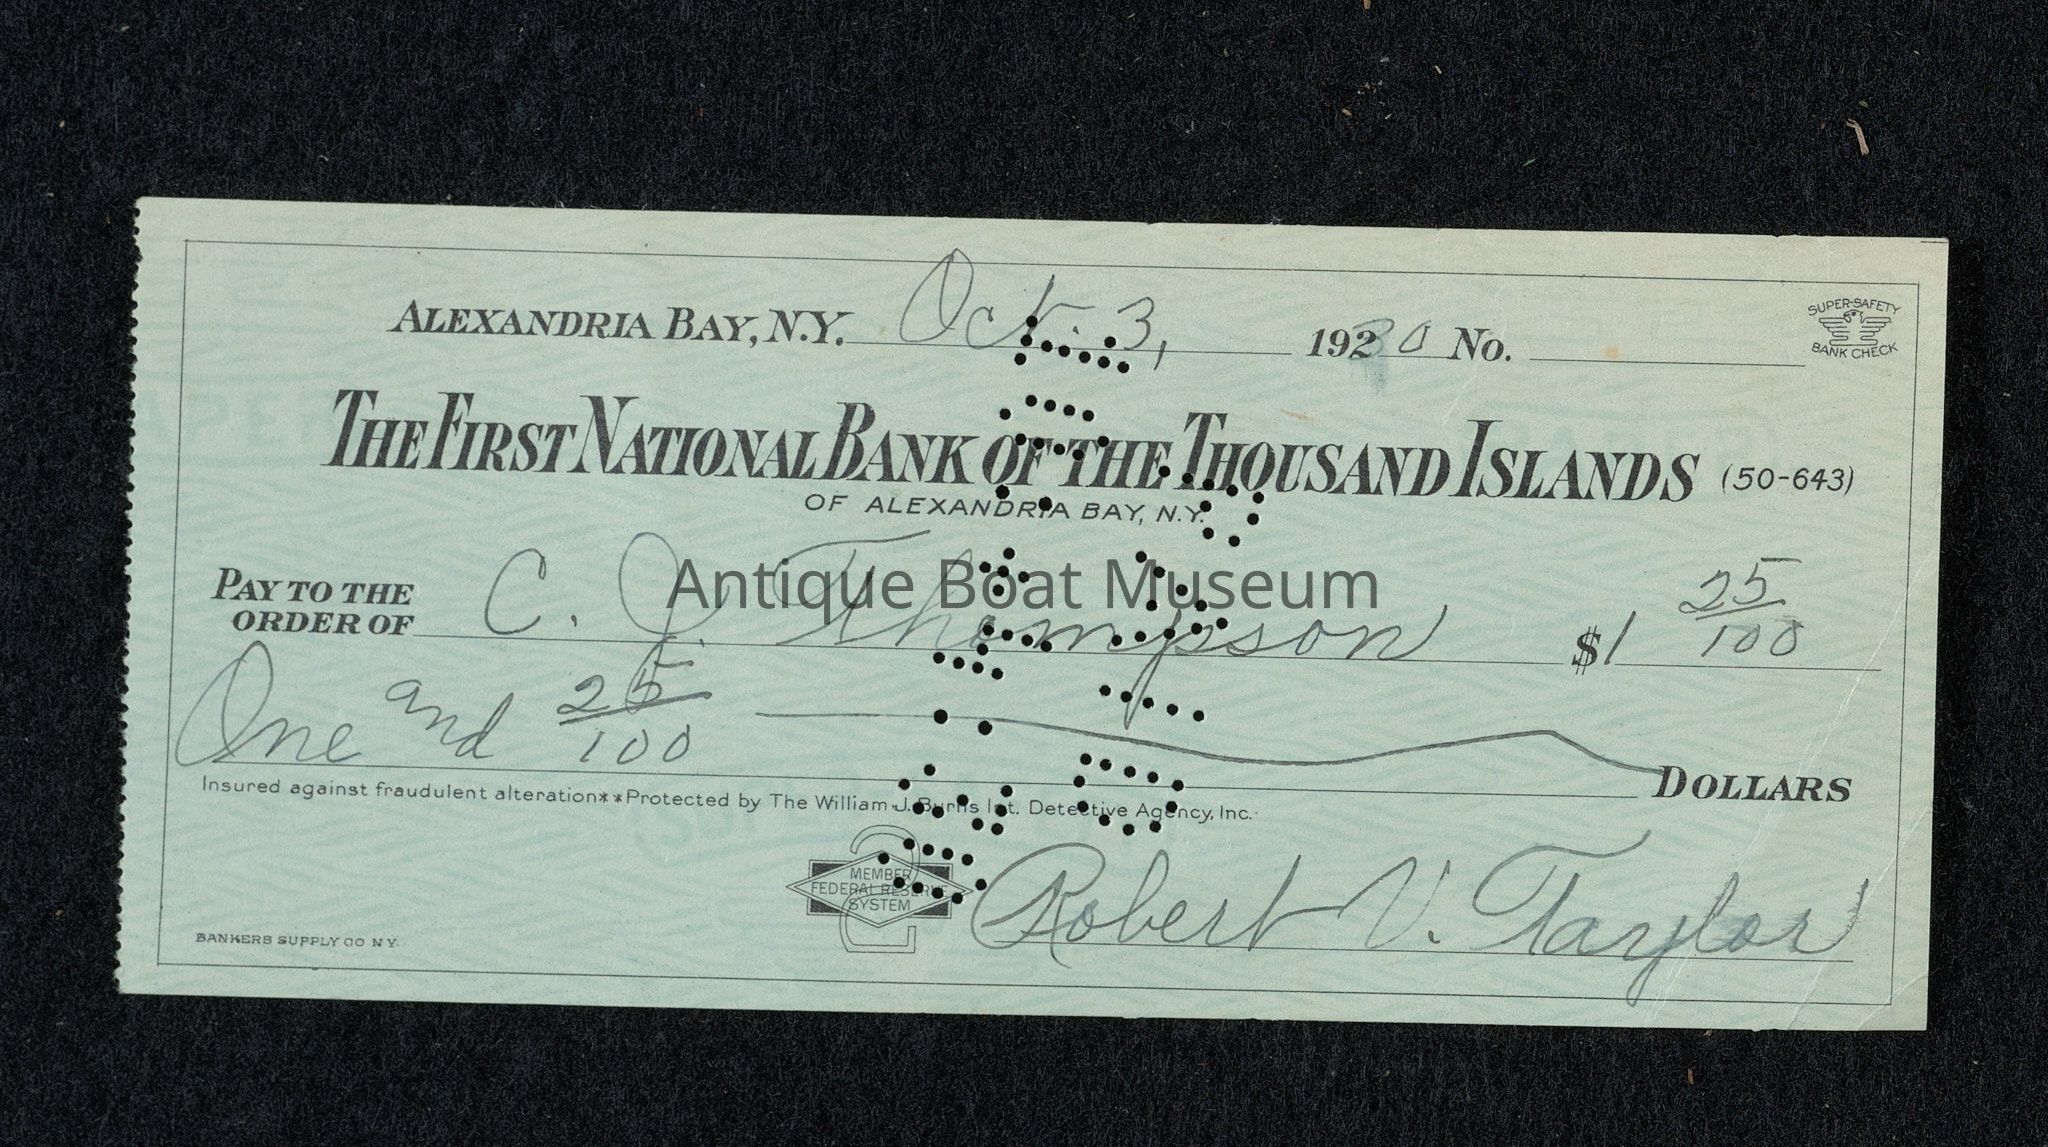 ALEXANDRIA BAY, N.Y. Oct. 3, 1930 No.
SUPER-SAFETY
BANK CHECK
THE FIRST NATIONAL BANK OF THE THOUSAND ISLANDS (50-643)
OF ALEXANDRIA BAY, N.Y.
PAY TO THE
ORDER OF C. J. Thompson $1 25/100
Antique Boat Museum
One and 25/100 DOLLARS
Insured against fraudulent alteration**Protected by The William J. Burns Int. Detective Agency, Inc.
MEMBER
FEDERAL RESERVE
SYSTEM
Robert V. Taylor
BANKERS SUPPLY CO N.Y.